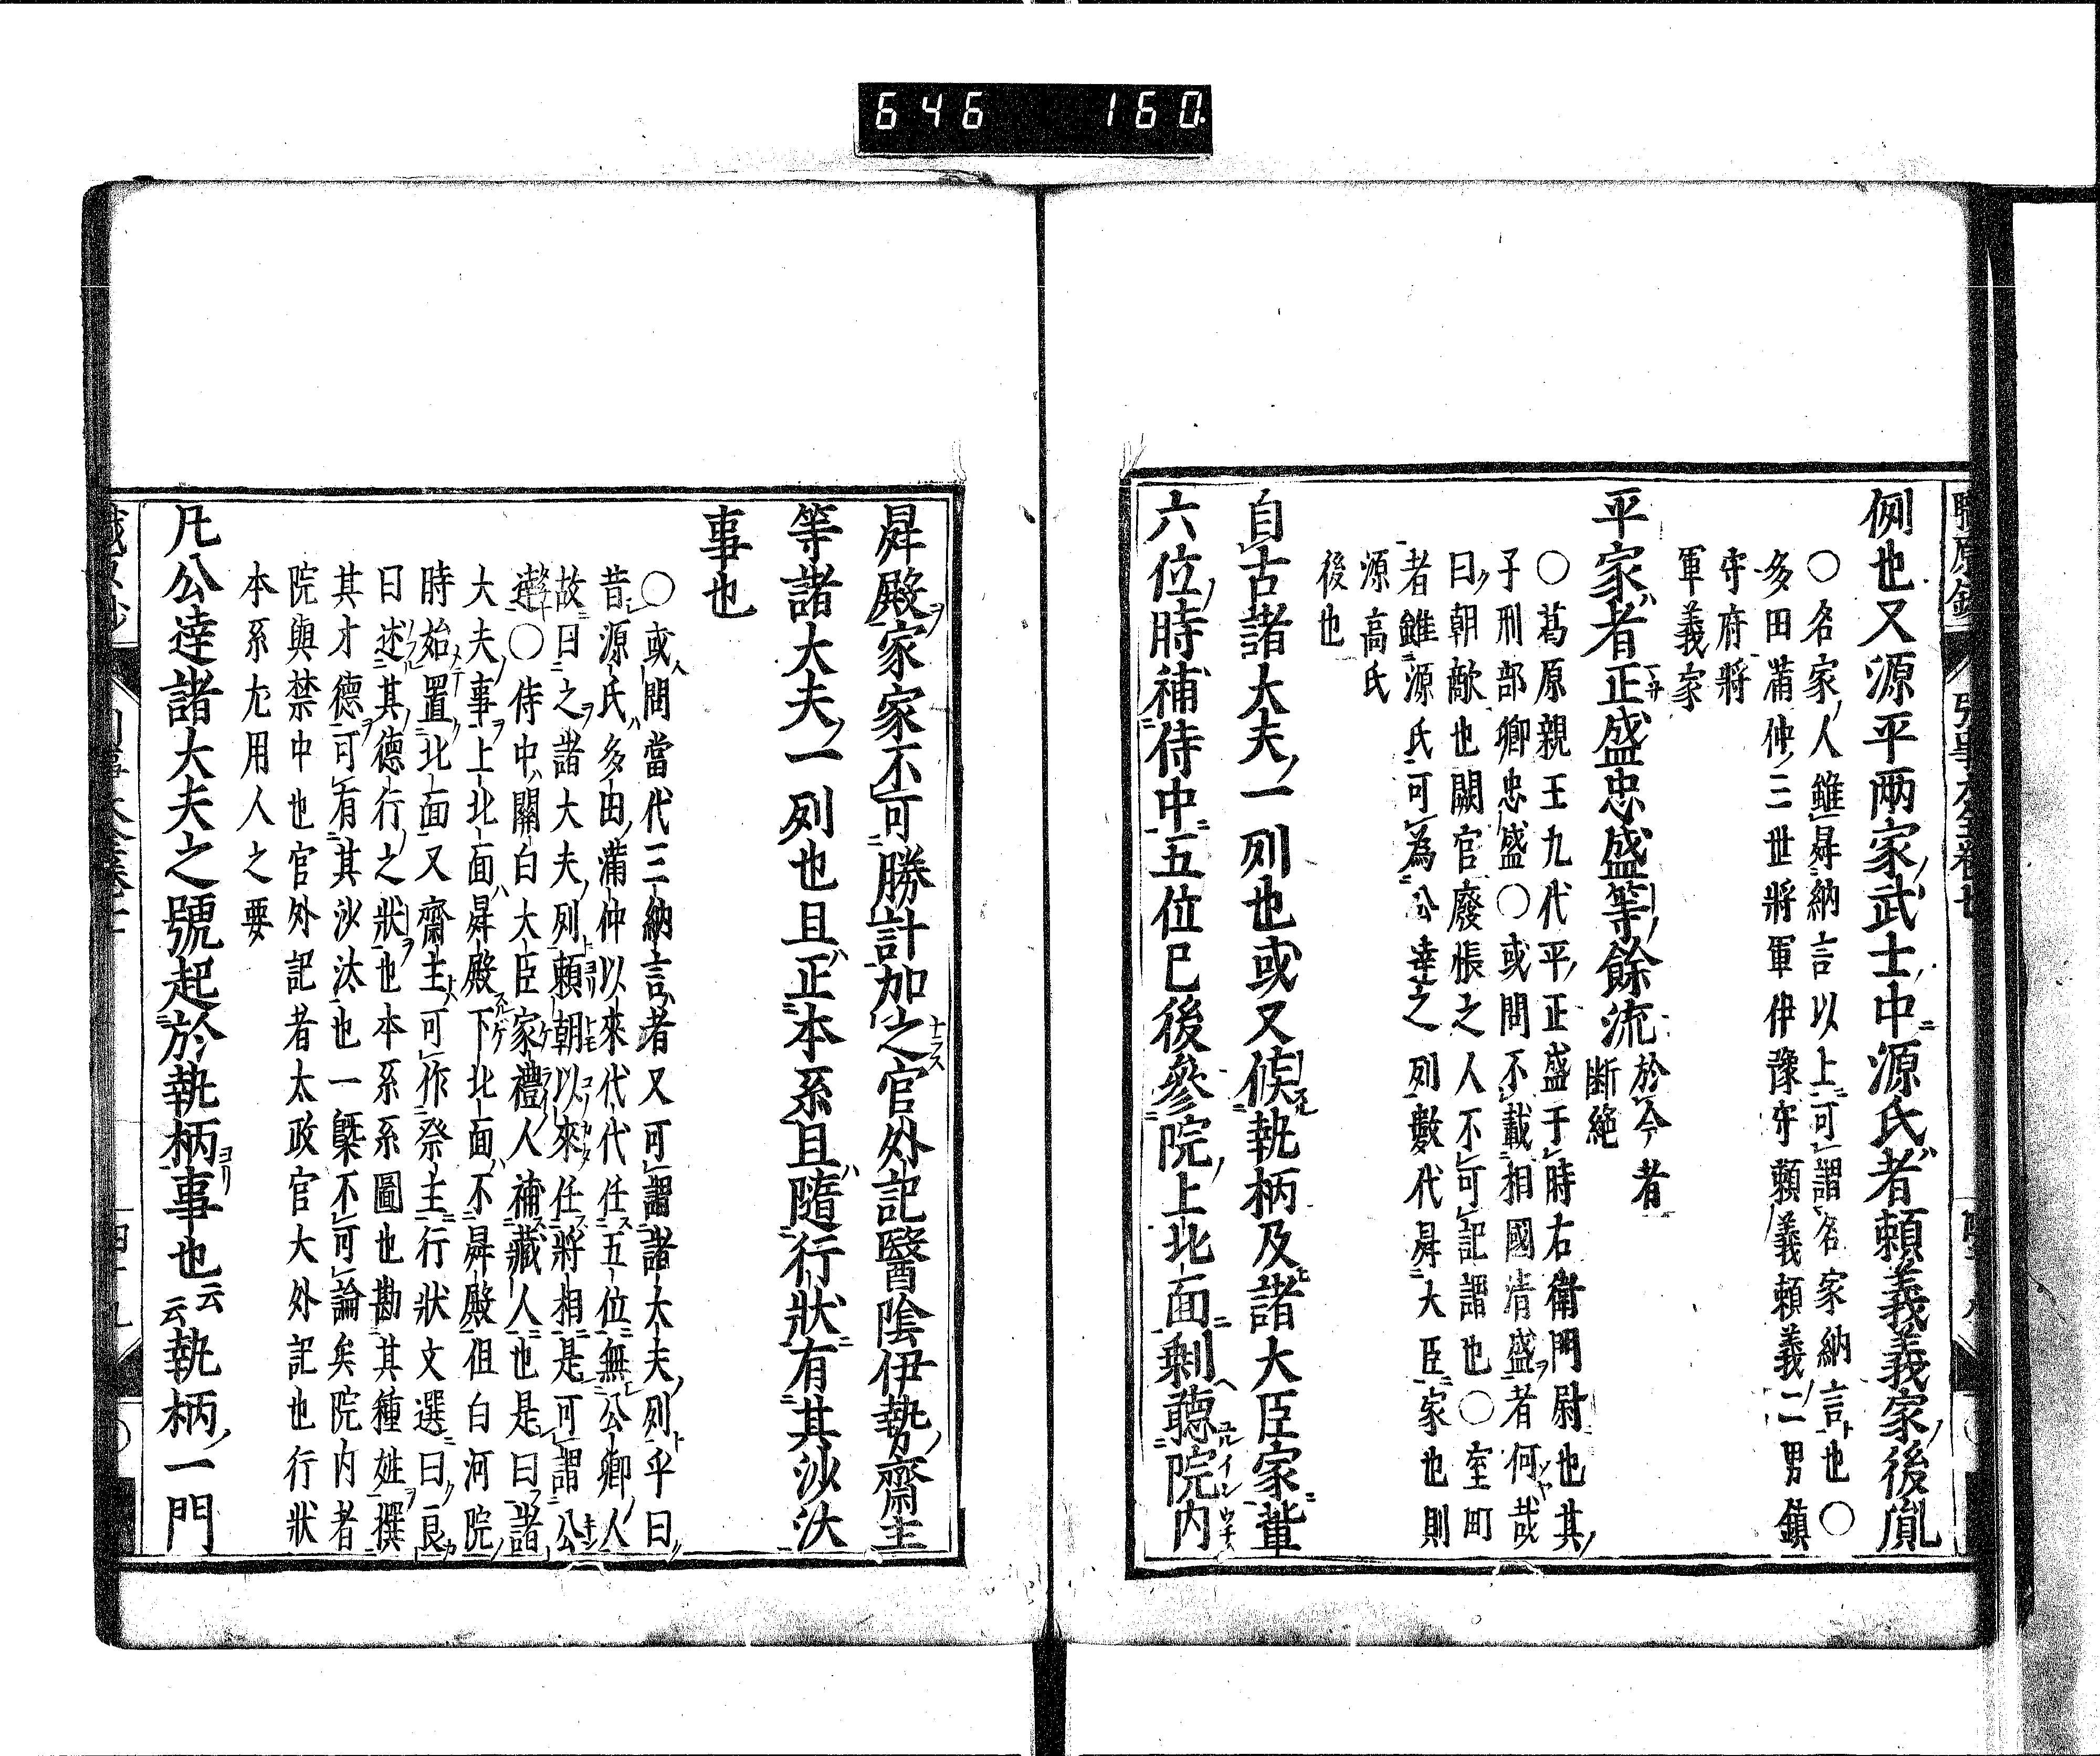 646 160
例也又源平両家武士中源氏者頼義義家後胤
〇名家人雖昇納言以上可謂名家納言也〇
多田満仲三世将軍伊豫守頼義頼義二男鎮
守府将
軍義家
平家者正盛忠盛等餘流於今者断絶
〇葛原親王九代平正盛于時右衛門尉也其
子刑部卿忠盛〇或問不載相國清盛者何哉
曰朝敵也闕官廢帳之人不可記謂也〇室町
者雖源氏可為公達之列數代昇大臣家也則
源高氏
後也
自古諸大夫一列也或又候執柄及諸大臣家輩
六位時補侍中五位已後參院上北面剰聴院内
昇殿家家不可勝計加之官外記醫陰伊勢齋主
等諸大夫一列也且正本系且隨行狀有其沙汰
事也
〇或問當代三納言者又可謂諸大夫列乎曰
昔源氏多田満仲以來代代任五位無公卿人
故曰之諸大夫列頼朝以來任將相是可謂公
達〇侍中關白大臣家禮人補藏人也是曰諸
大夫事上北面昇殿下北面不昇殿但白河院
時始置北面又齋主可作祭主行狀文選曰良
曰述其德行之狀也本系系圖也勘其種姓撰
其才德可有其沙汰也一槩不可論矣院内者
院與禁中也官外記者太政官大外記也行狀
本系尤用人之要
凡公達諸大夫之號起於執柄事也云云執柄一門